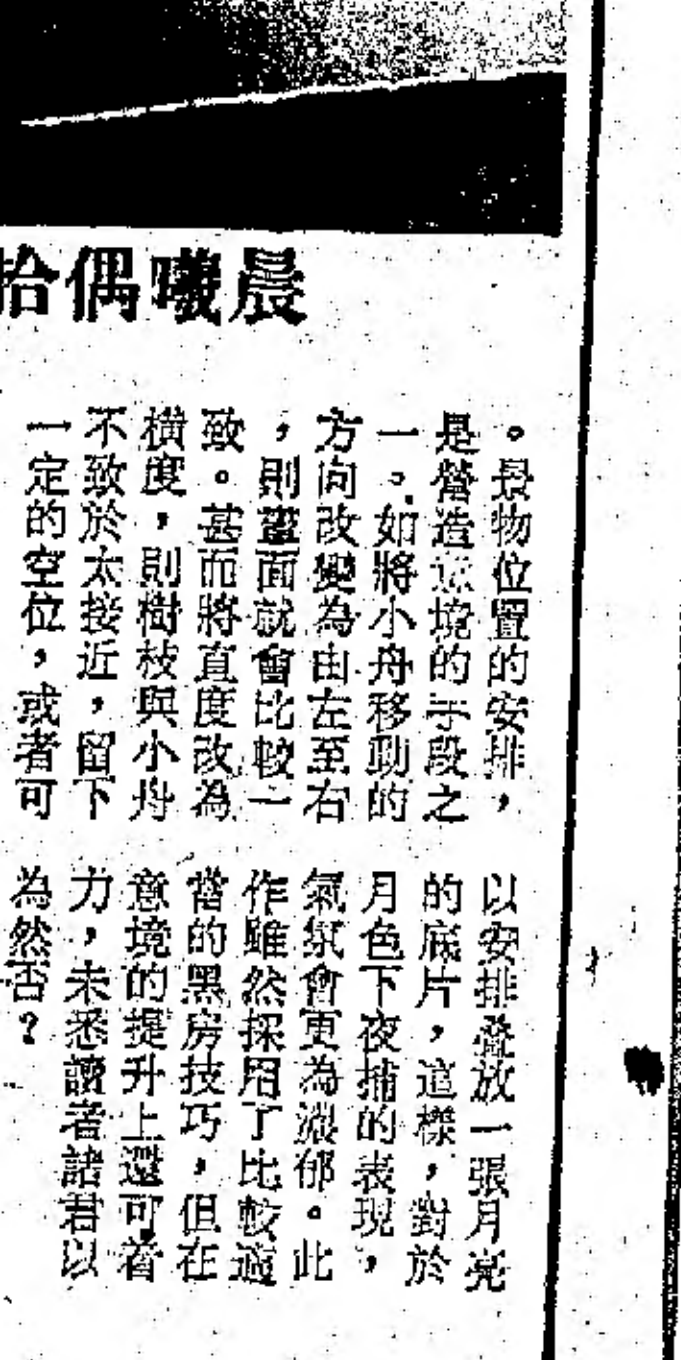 晨曦偶拾
。景物位置的安排，
是營造意境的手段之
一。如將小舟移動的
方向改變為由左至右
，則畫面就會比較一
致。甚而將直度改為
橫度，則樹枝與小舟
不致於太接近，留下
一定的空位，或者可
以安排叠放一張月亮
的底片，這樣，對於
月色下夜捕的表現，
氣氛會更為濃郁。此
作雖然採用了比較適
當的黑房技巧，但在
意境的提升上還可着
力，未悉讀者諸君以
為然否？